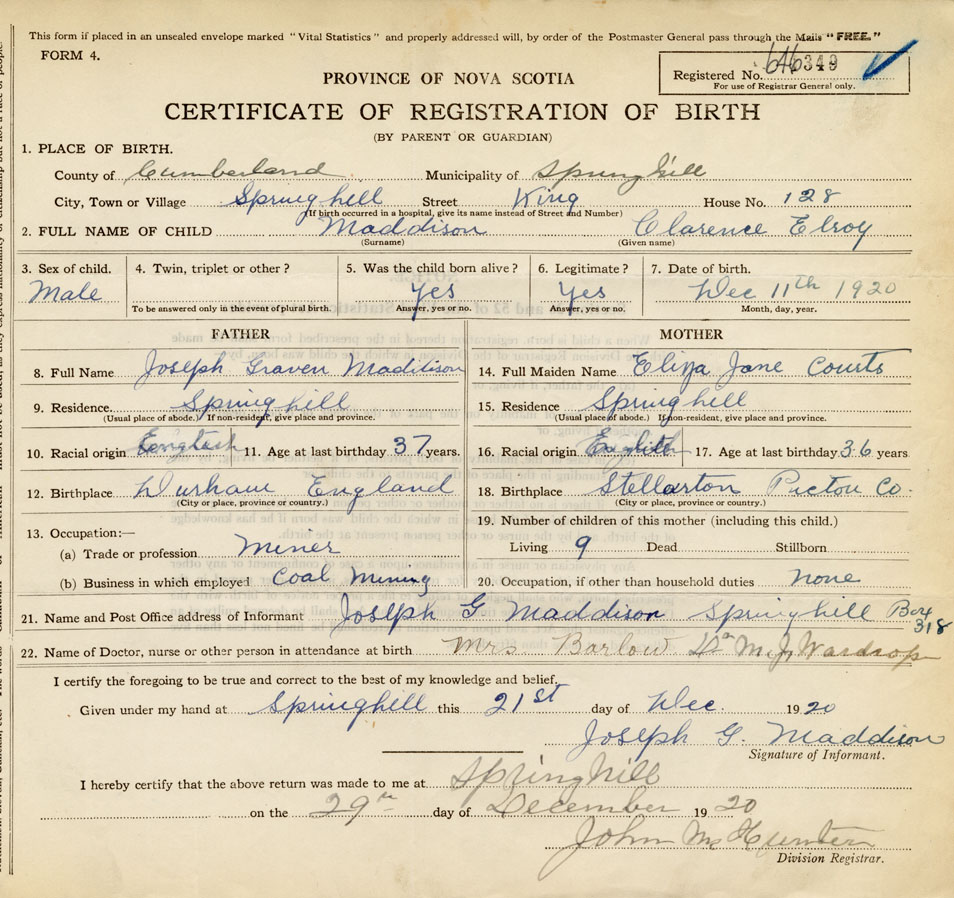 This form if placed in an unsealed envelope marked "Vital Statistics" and properly addressed will, by order of the Postmaster General pass through the Mails "FREE."
FORM 4.
Registered No. 646349
For use of Registrar General only.
PROVINCE OF NOVA SCOTIA
CERTIFICATE OF REGISTRATION OF BIRTH
(BY PARENT OR GUARDIAN)
1. PLACE OF BIRTH.
County of Cumberland Municipality of Springhill
City, Town or Village Springhill Street King House No. 128
(If birth occurred in a hospital, give its name instead of Street and Number)
2. FULL NAME OF CHILD Maddison Clarence Elroy
(Surname) (Given name)
3. Sex of child. 4. Twin, triplet or other? 5. Was the child born alive? 6. Legitimate? 7. Date of birth.
Male Yes Yes Dec 11th 1920
To be answered only in the event of plural birth. Answer, yes or no. Answer, yes or no. Month, day, year.
FATHER MOTHER
8. Full Name Joseph Graven Maddison 14. Full Maiden Name Eliza Jane Courts
9. Residence Springhill 15. Residence Springhill
(Usual place of abode.) If non-resident, give place and province. (Usual place of abode.) If non-resident, give place and province.
10. Racial origin English 11. Age at last birthday 37 years. 16. Racial origin English 17. Age at last birthday 36 years
12. Birthplace Durham England 18. Birthplace Stellarton Pictou Co.
(City or place, province or country.) (City or place, province or country.)
13. Occupation:— 19. Number of children of this mother (including this child.)
(a) Trade or profession Miner Living 9 Dead Stillborn
(b) Business in which employed Coal Mining 20. Occupation, if other than household duties None
21. Name and Post Office address of Informant Joseph G. Maddison Springhill Box 318
22. Name of Doctor, nurse or other person in attendance at birth Mrs Barlow Dr M J Wardrop
I certify the foregoing to be true and correct to the best of my knowledge and belief.
Given under my hand at Springhill this 21st day of Dec. 1920
Joseph G. Maddison
Signature of Informant.
I hereby certify that the above return was made to me at Springhill
on the 29th day of December 1920
John Mc Hunter
Division Registrar.